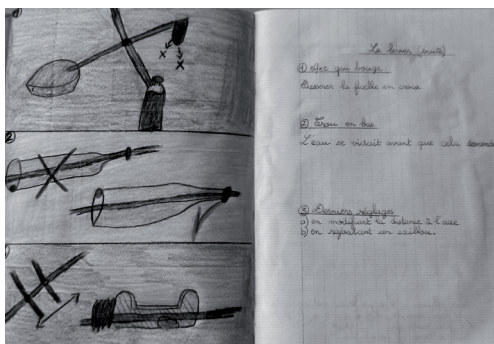 Le levier (suite)
① Axe qui bouge
Resserrer la ficelle en croix.
② Trou en bas
L'eau se vidait avant que cela descende
③ Derniers réglages
a) en modifiant la distance à l'axe
b) en rajoutant un caillou.
②
x
x